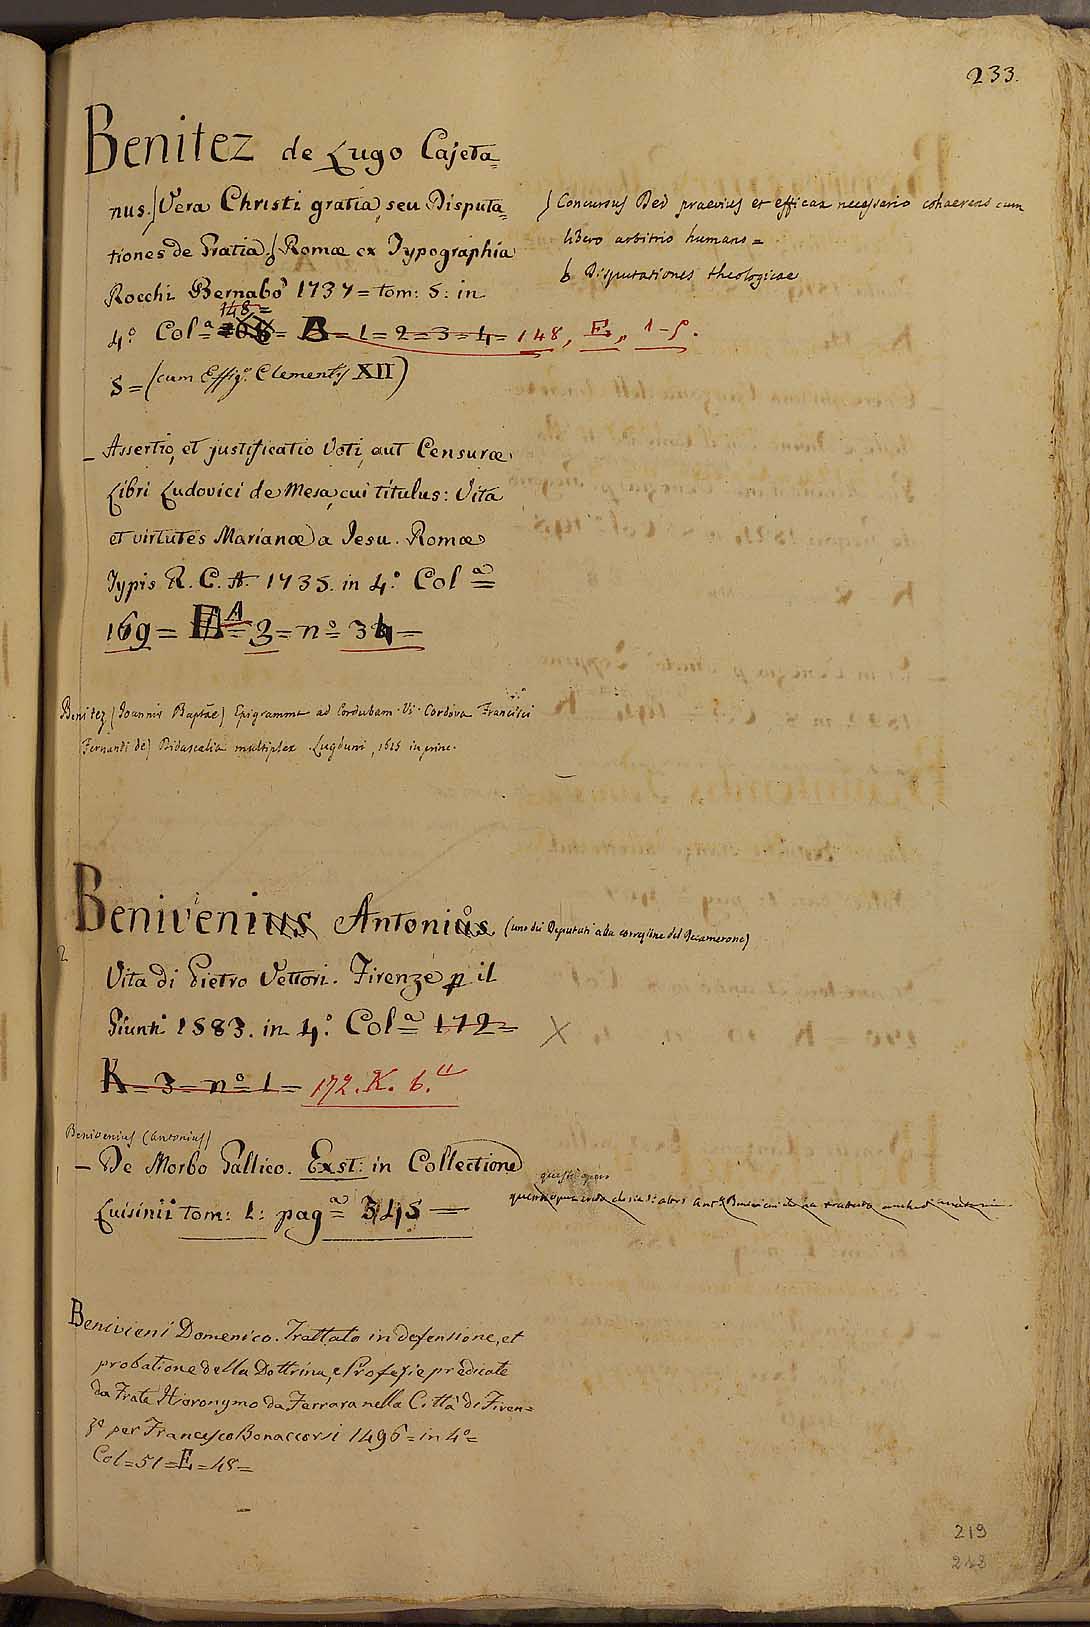 233.
Benitez de Lugo Cajeta=
nus.) Vera Christi gratia, seu Disputa=
tiones de Gratia. Romæ ex Typographia
Rocchi Bernabò 1737 = tom: 5: in
148 =
4.º Col.ª = B = 1 = 2 = 3 = 4 = 148, E, 1-5.
5 = (cum Effig.e Clementis XII)
) Concursus Dei praevius et efficax necessario cohaerens cum
libero arbitrio humano =
6 Disputationes theologicae
_ Assertio, et justificatio Voti, aut Censuræ
Libri Ludovici de Mesa, cui titulus: Vita
et virtutes Marianæ a Jesu. Romæ
Typis R. C. A. 1735. in 4.º Col.ª =
169 = A = 3 = nº = 34 =
Benitez (Joannis Baptæ) Epigramma ad Cordubam. Vi. Cordova Francisci
Fernandi de) Didascalia multiplex. Lugduni, 1615 in princ.
Benivenius Antonius (uno dei Deputati alla correz.ne del Decamerone)
Vita di Pietro Vettori. Firenze p il
Giunti 1583. in 4.º Col.ª 172 = X
K = 3 = nº = 1 = 172. K. 6.
Benivenius (Antonius)
_ De Morbo Gallico. Exst: in Collectione
Luisinii tom: 1: pag.ª 345 =
Benivieni Domenico. Trattato in defensione, et
probatione della Dottrina, e Profezie predicate
da Frate Hieronymo da Ferrara nella Città di Firen=
ze per Francesco Bonaccorsi 1496 = in 4º =
Col = 51 = E = 48 =
219